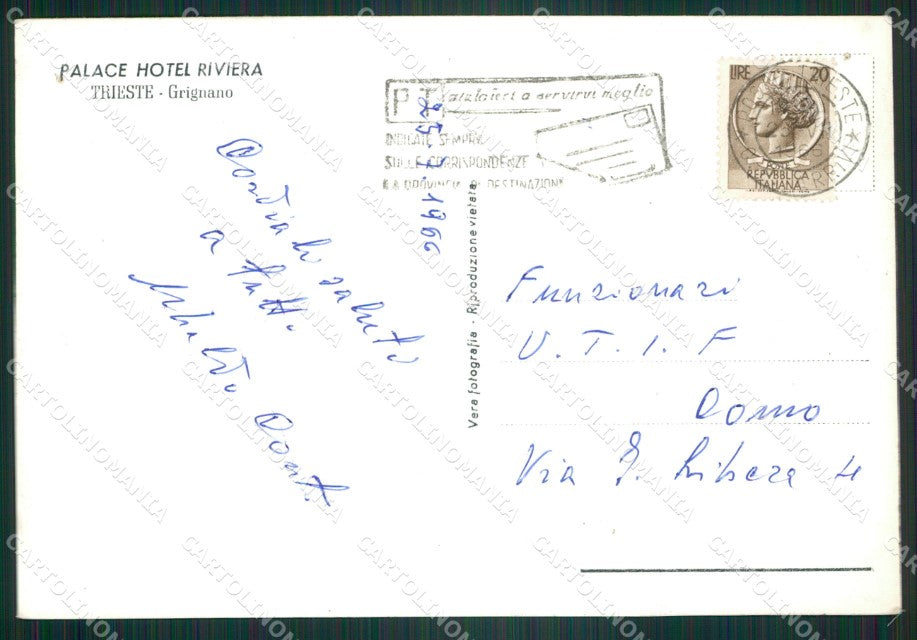 PALACE HOTEL RIVIERA
TRIESTE - Grignano
PT aiutateci a servirvi meglio
INDICATE SEMPRE
SULLE CORRISPONDENZE
LA PROVINCIA DI DESTINAZIONE
LIRE 20
REPVBBLICA
ITALIANA
TRIESTE
ARRIVI
25 1966
Cordiali saluto
a tutti
Vera fotografia - Riproduzione vietata
Funzionari
U. T. I. F
Como
Via
CARTOLINOMANIA